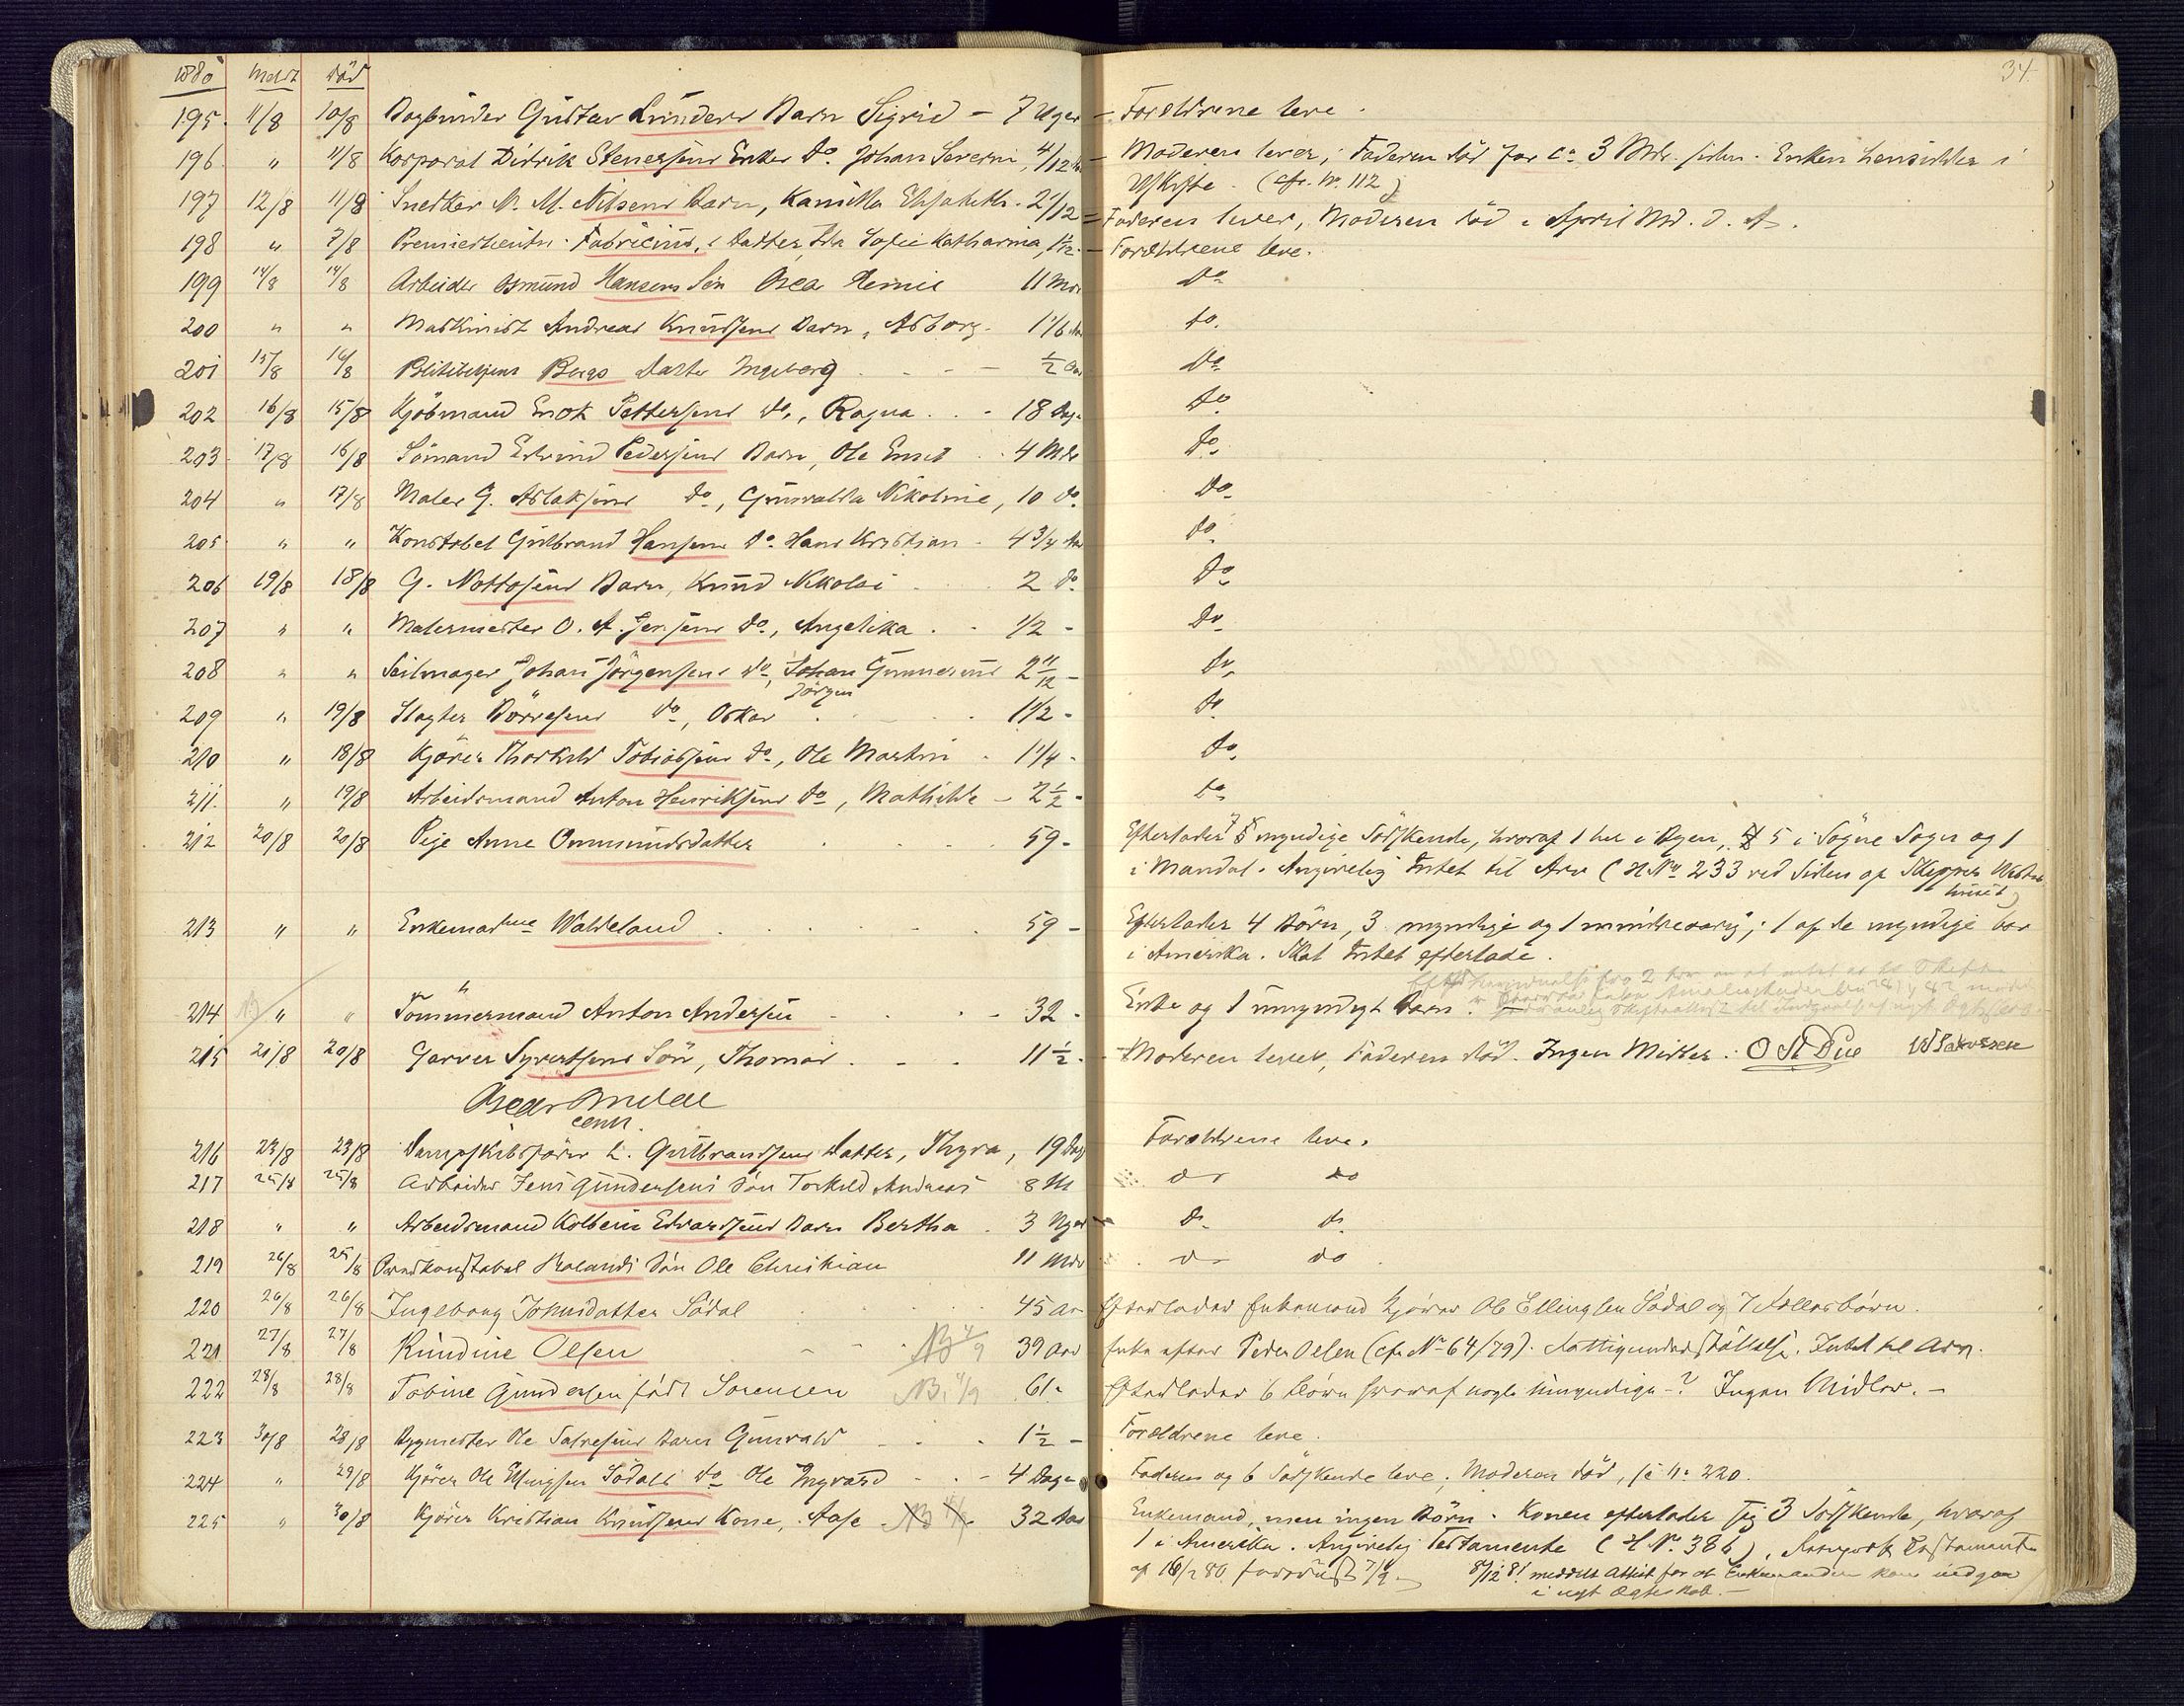 1880 Meldt Död 34.
195. 11/8 10/8 Bogbinder Gustav Lunders Barn Sigrid - 7 Uger - Forældrene leve.
196 " 11/8 Korporal Didrik Stenersens Enkes do. Johan Severin, 4/12 Aar - Moderen lever, Faderen död for ca. 3 Mdr. siden. Enken hensidder i
Uskifte. (cfr. Nr. 112)
197 12/8 11/8 Snedker N. M. Nilsens Barn, Kamilla Elisabeth. 2 1/12 - Faderen lever, Moderen död i April Md. d. A.
198 " 7/8 Premierlieutn. Fabricius's Datter, Ida Sofie Katharina, 1 1/12 - Forældrene leve.
199 14/8 14/8 Arbeider Osmund Hansens Sön Oscar 11 Mdr do
200 " " Maskinist Andreas Knudsens Barn, Asborg - 1 1/6 Aar do.
201 15/8 14/8 Bergs Datter Ingeborg - - - 1/2 Aar Do
202 16/8 15/8 Kjöbmand Enok Pettersens do., Ragna . . - 18 Dage do
203 17/8 16/8 Sömand Edvind Pedersens Barn, Ole Emil . . 4 Mdr do.
204 " 17/8 Maler G. Aslaksens do., Gunvalda Nikoline, 10 do. Do.
205 " " Konstabel Gulbrand Hansens do. Hans Kristian - 4 3/4 Aar do.
206 19/8 18/8 G. Nottosens Barn, Knud Nikolai . . 2 do. Do
207 " " Malermester O. A. Jensens do., Angelika . - 1/2 - Do.
208 " " Seilmager Johan Jörgensens do., Johan Gunnerius 2 11/12 - do.
Jörgen
209 " 19/8 Slagter Dörresens do., Oskar . . . 1 1/2 - do.
210 " 18/8 Kjörer Thorkild Tobiassens do., Ole Martin - 1 1/4 - do.
211. " 19/8 Arbeidsmand Anton Henriksens do., Mathilde - 2 1/2 - do
212 20/8 20/8 Pige Anne Ommundsdatter . . . . 59 - Efterlader 7 myndige Södskende, hvoraf 1 her i Byen, 5 i Sögne Sogn og 1
i Mandal. Angivelig Intet til Arv (H No. 233 ved Siden af Skipper
huset)
213 " " Enkemadme Waldeland . . . . 59 - Efterlader 4 Börn, 3 myndige og 1 mindreaarig; 1 af de myndige bor
i Amerika. Skal Intet efterlade.
214 " " Tömmermand Anton Andersen - - . - 32 - Enke og 1 umyndigt Barn.
215 21/8 20/8 Garver Syvertsens Sön, Thomas . . . 11 1/2 - Moderen lever, Faderen död. Ingen Midler. O St Due
216 23/8 23/8 Dampskibsförer L. Gulbrandsens Datter, Thyra, 19 Dage Forældrene leve.
217 25/8 25/8 Arbeider Jens Gundersens Sön Torkild Andreas 8 M do do
218 " " Arbeidsmand Kolbein Edvardsens Barn Bertha . 3 Uger do. do.
219 26/8 25/8 Brandkonstabel Rolands Sön Ole Christian 11 Mdr do do
220 26/8 26/8 Ingeborg Johnsdatter Södal 45 Aar Efterlader Enkemand Kjörer Ole Ellingsen Södal og 7 Fællesbörn.
221 27/8 27/8 Rundine Olsen - - . NB 4/9 39 Aar Enke efter Peder Olsen (cfr No 64/79). Fattigunderstöttelse. Intet til Arv.
222 28/8 28/8 Tobine Gundersen född Sorensen NB. 4/9 61 - Efterlader 6 Börn hvoraf nogle umyndige -? Ingen Midler. -
223 30/8 28/8 Bygmester Ole Salvesens Barn Gunvald - - - 1 1/2 - Forældrene leve.
224 " 29/8 Kjörer Ole Ellingsen Södals do Ole Ingvard - . - 4 Dage Faderen og 6 Södskende leve, Moderen död, se Nr. 220.
225 " 30/8 Kjörer Kristian Knudsens Kone, Aase NB 32 Aar Enkemand, men ingen Börn. Konen efterlader sig 3 Södskende, hvoraf
1 i Amerika. Angivelig Testamente (H No. 386). Testamente
af 16/2 80 7/9 - 8/12 81 meddelt Attest for at Enkemanden kan indgaa
i nyt Ægteskab. -